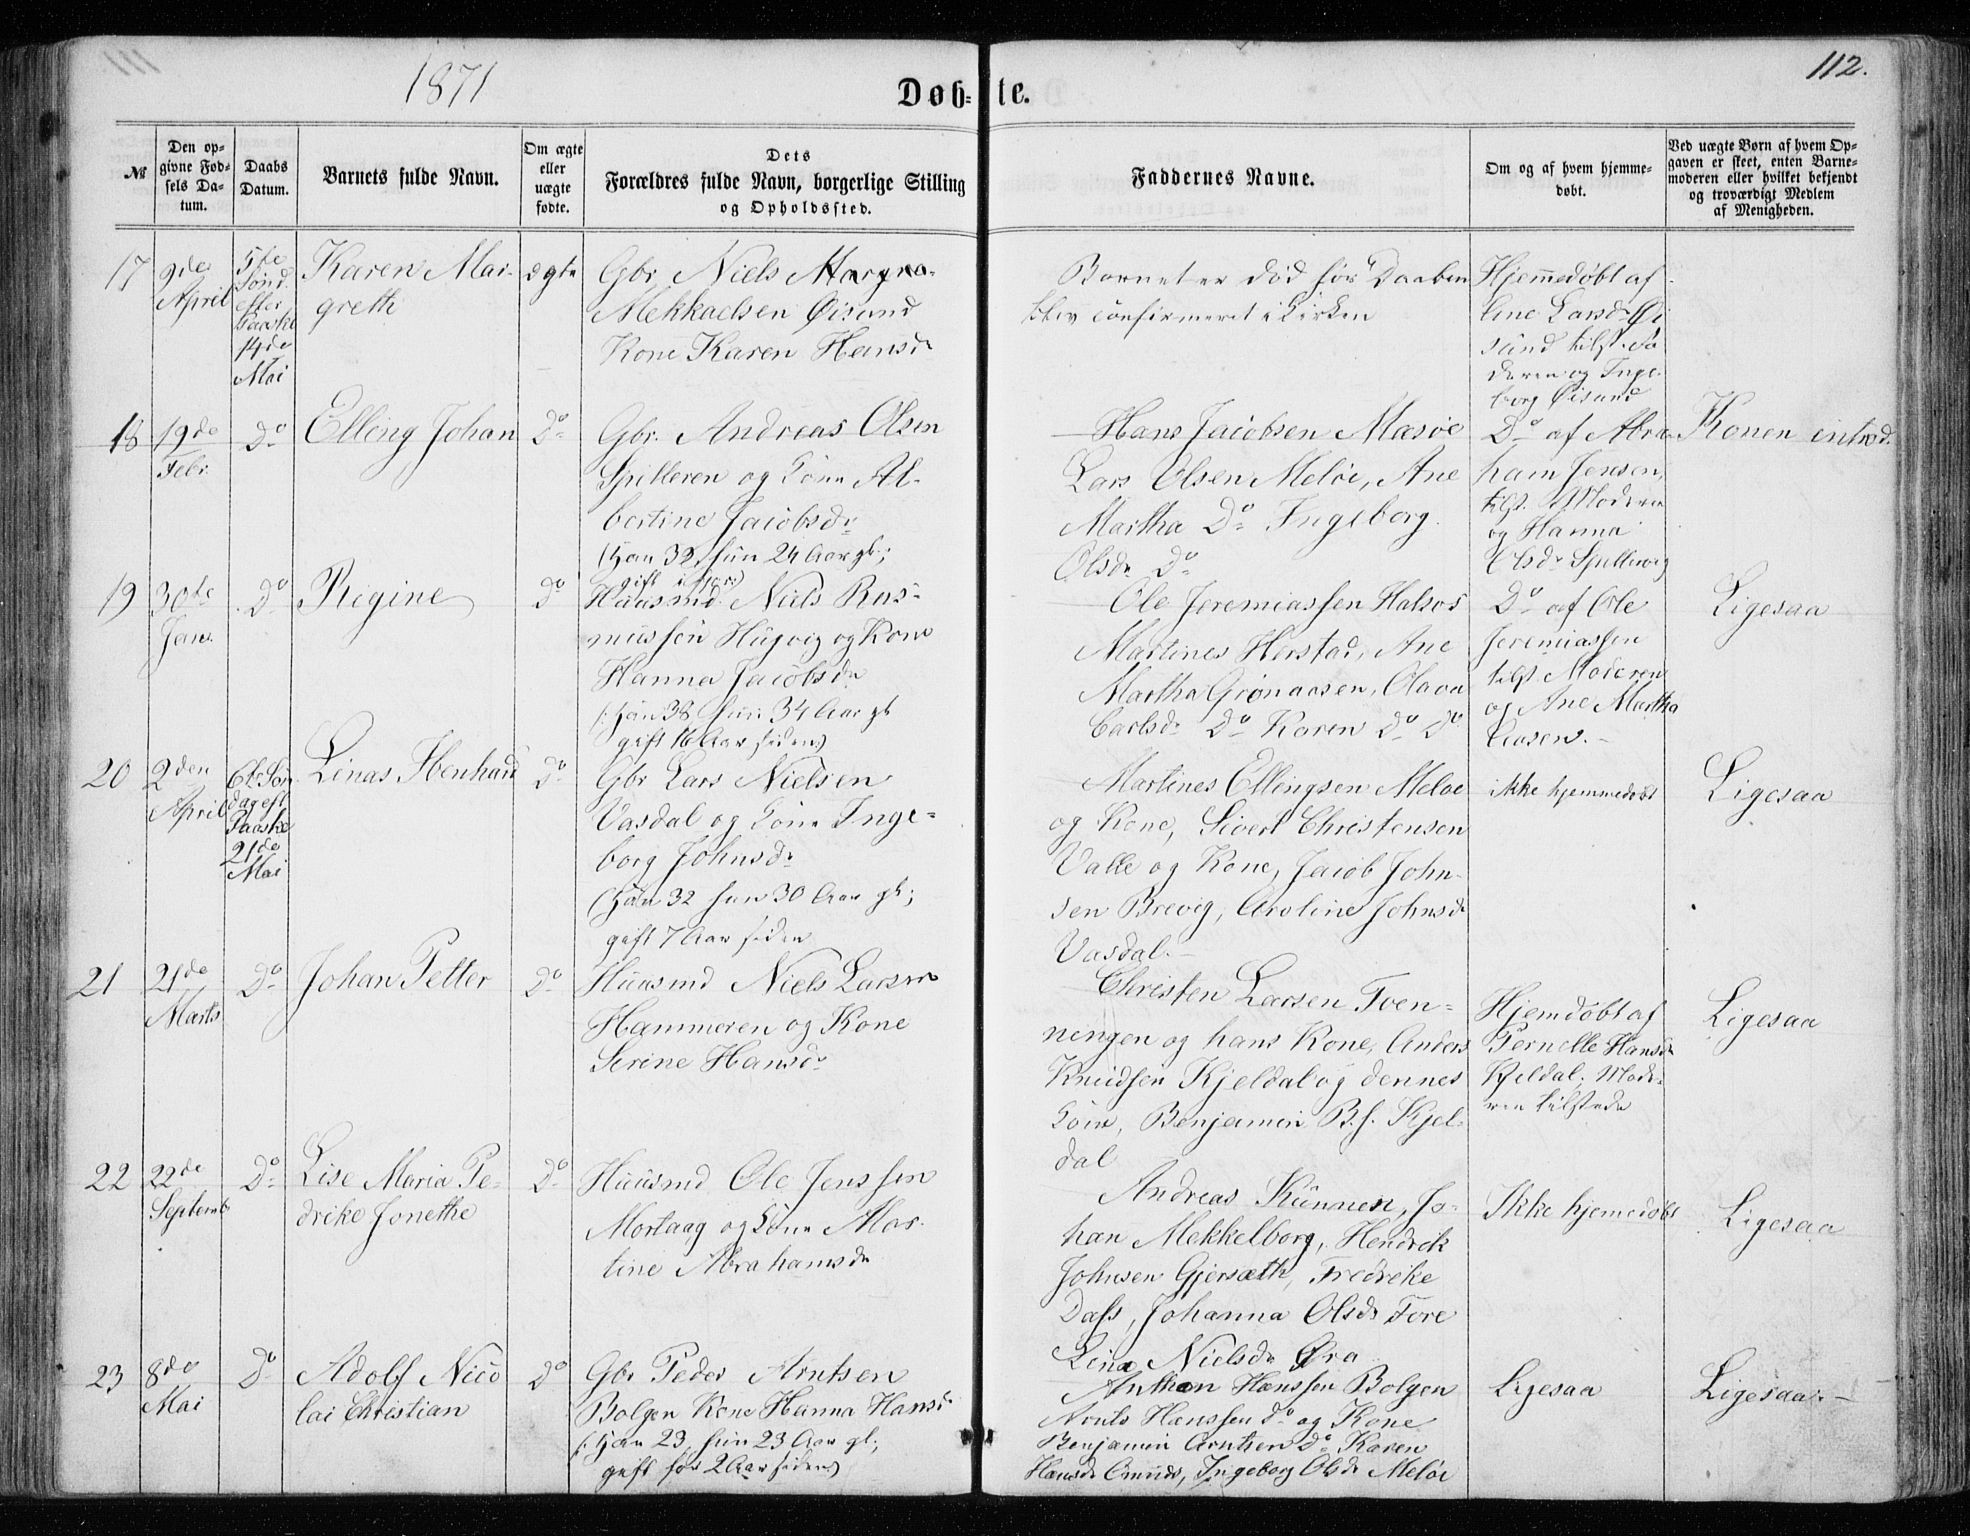 1871
Døb-te.
112.
№
Den op-
givne Fød-
sels Da-
tum.
Daabs
Datum.
Barnets fulde Navn.
Om ægte
eller
uægte
fødte.
Dets
Forældres fulde Navn, borgerlige Stilling
og Opholdssted.
Faddernes Navne.
Om og af hvem hjemme-
døbt.
Ved uægte Børn af hvem Op-
gaven er skeet, enten Barne-
moderen eller hvilket bekjendt
og troværdigt Medlem
af Menigheden.
17
9de
April
5te
Sønd.
efter
Paaske
14de
Mai
Karen Mar-
greth
ægte
Gbr. Niels
Mekkaelsen Øisund
Kone Karen Hansdr
Barnet er død før Daaben
blev confirmeret i Kirken
Hjemmedøbt af
Ane Larsdr Øi
sund tilst. Fa
deren og Inge-
borg Øisund
18
19de
Febr.
Do
Elling Johan
Do
Gbr. Andreas Olsen
Spilleren og Kone Al-
bertine Jacobsdr
(Han 32, hun 24 Aar gl.;
gift i Aar)
Hans Jacobsen Mæsøe
Lars Olsen Meløe, Ane
Martha Do Ingeborg
Olsdr Do
Do af Abra-
ham Jensen,
tilst. Moderen
og Hanna
Olsdr Spillevig
Konen introd.
19
30te
Jan.
Do
Regine
Do
Huusmd. Niels Ras-
mussen Hugvig og Kone
Hanna Jacobsdr
(: Han 38 hun 34 Aar gl
gift 16 Aar siden)
Ole Jeremiassen Halsos
Martines Herstad, Ane
Martha Grønaasen, Olava
Carlsdr Do Karen Do Do
Do af Ole
Jeremiassen
tilst. Moderen
og Ane Martha
Aasen.-
Ligesaa
20
2den
April
6te Søn
dag eft
Paaske
21de
Mai
Linas Benhard
Do
Gbr Lars Nielsen
Vasdal og Kone Inge-
borg Johnsdr
(Han 32 hun 30 Aar gl.;
gift 7 Aar siden
Martines Ellingsen Meløe
og Kone, Sivert Christensen
Valle og Kone, Jacob John-
sen Brevig, Caroline Johnsdr
Vasdal.-
ikke hjemmedøbt
Ligesaa
21
21de
Marts
Do
Johan Petter
Do
Huusmd Niels Larsen
Hammeren og Kone
Serine Hansdr
Christen Larsen Tven-
ningen og hans Kone, Anders
Knudsen Kjeldal og dennes
Kone, Benjamin B.s. Kjel-
dal
Hjemdøbt af
Pernelle Hansdr
Kjeldal; Mode-
ren tilstede
Ligesaa
22
22de
Septemb
Do
Lise Maria Pe-
drike Jonethe
Do
Huusmd Ole Jenssen
Mortaag og Kone Mar-
tine Abrahamsdr
Andreas Kunnen, Jo-
han Mekkelborg, Hendrik
Johnsen Gjersæth, Fredrike
Dass, Johanna Olsdr Fore
Lina Nielsdr Øra
Ikke hjemedøbt
Ligesaa
23
8de
Mai
Do
Adolf Nico
lai Christian
Do
Gbr Peder Arntsen
Bolgen Kone Hanna Hansdr
(: Han 23, hun 23 Aar gl.,
gift for 2 Aar siden)
Anthon Hanssen Bolgen
Arnts Hanssen do og Kone
Benjamin Arntsen do Karen
Hansdr, Ingeborg Olsdr Meløe
Ligesaa
Ligesaa.-